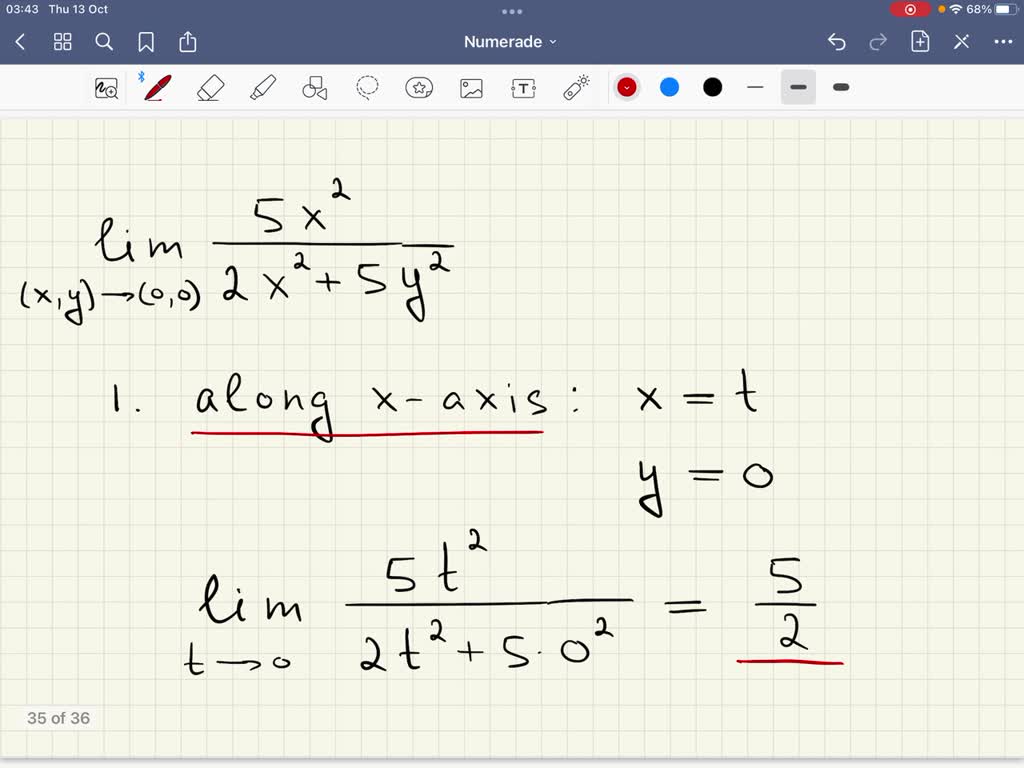 03:43 Thu 13 Oct
68%
Numerade
T
lim 5x²
(x,y)→(0,0) 2x² + 5y²
1. along x-axis: x = t
y = 0
lim 5t² = 5
t→0 2t² + 5·0² 2
35 of 36